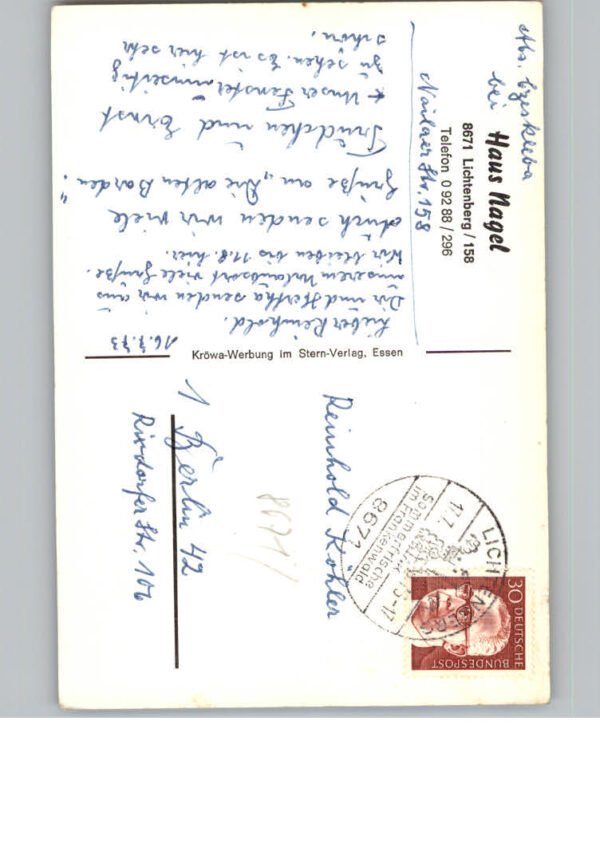 Abs. Czeskleba
bei Haus Nagel
8671 Lichtenberg / 158
Telefon 0 92 88 / 296
Nailaer Str. 158
16.7.73
Lieber Reinhold.
Dir und Hertha senden wir aus
unserem Urlaubsort viele Grüße.
Wir bleiben bis 11.8. hier.
Auch senden wir viele
Grüße an „Die alten Barden."
Trudchen und Ernst
Unser Fenster
zu sehen. Es ist hier sehr
schön.
Kröwa-Werbung im Stern-Verlag, Essen
30 DEUTSCHE
BUNDESPOST
LICHTENBERG
17.7.73
-17
Sommerfrische
im Frankenwald
8671
Reinhold Köhler
8671/
1 Berlin 42
Rixdorfer Str. 106